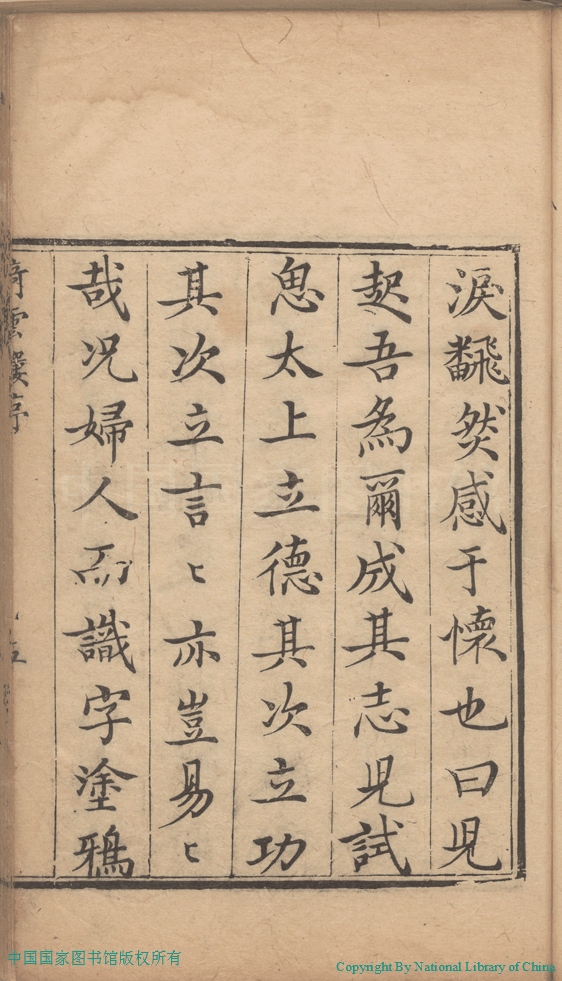 淚飜然感于懷也曰児
起吾為爾成其志児試
思太上立德其次立功
其次立言〻亦豈易〻
哉况婦人而識字塗鴉
倚雲樓序
中国国家图书馆版权所有
Copyright By National Library of China